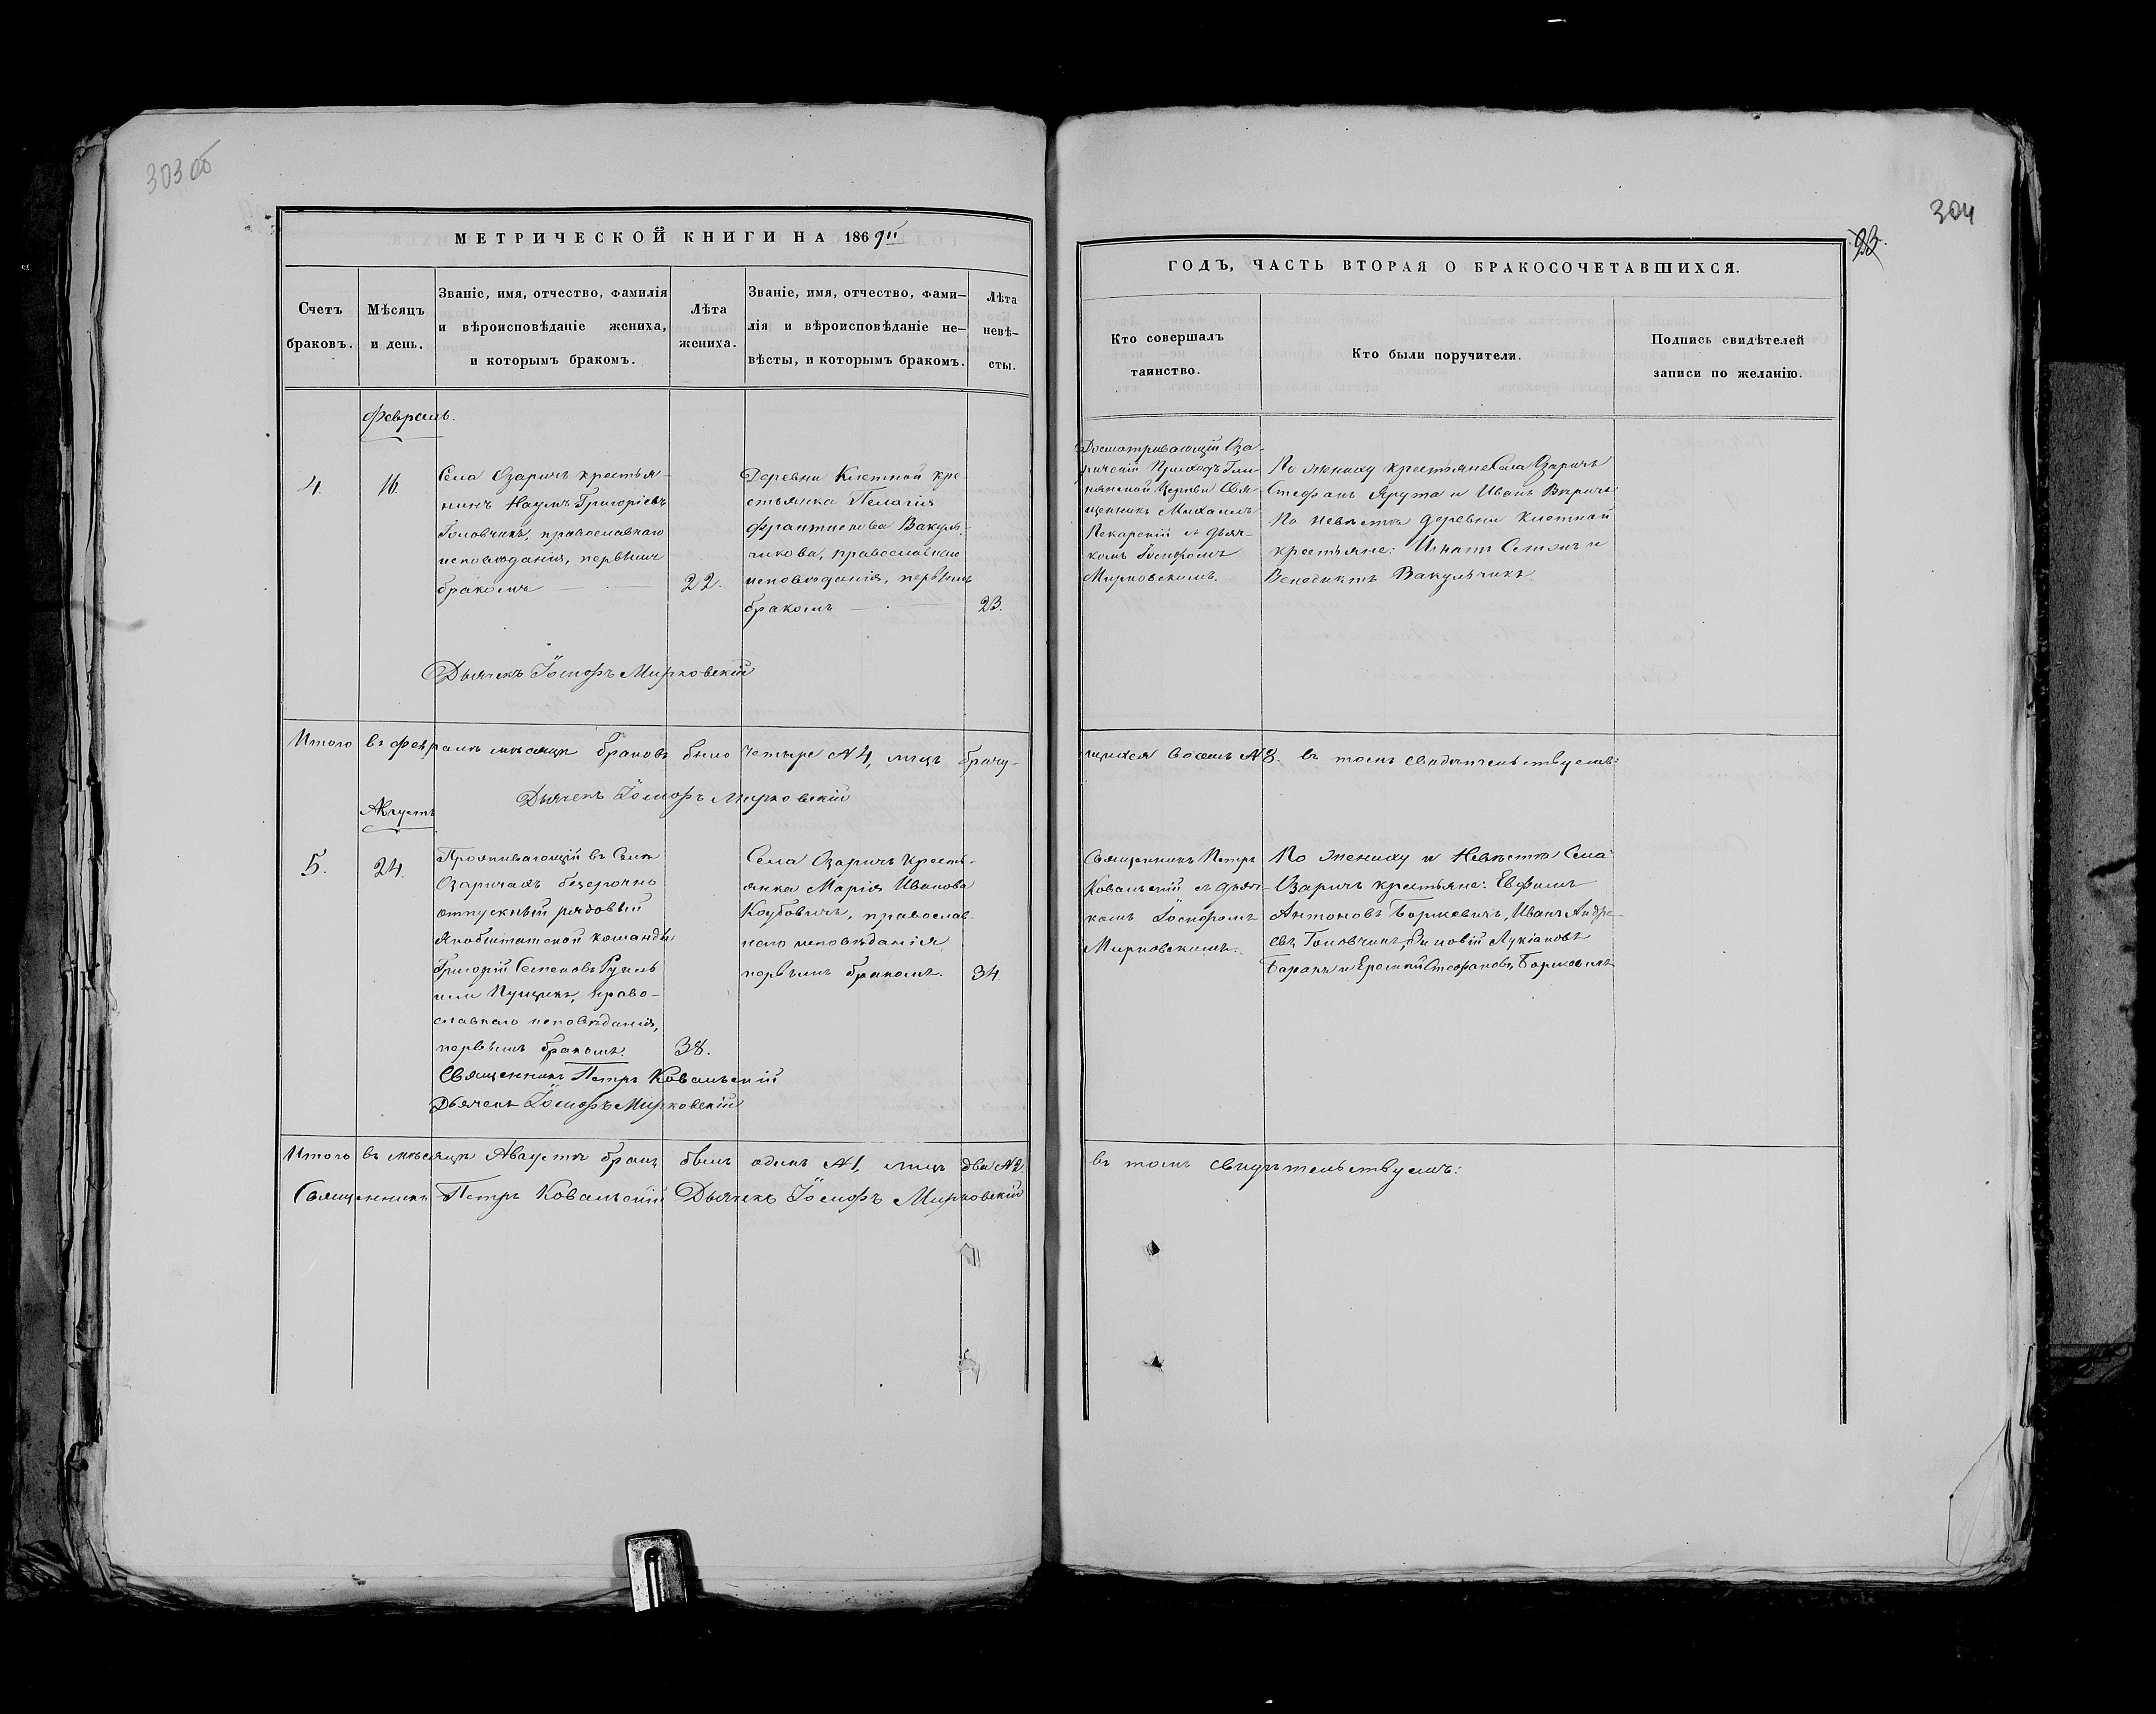 303 об
МЕТРИЧЕСКОЙ КНИГИ НА 1869й
Счетъ
браковъ.
Мѣсяцъ
и день.
Званіе, имя, отчество, фамилія
и вѣроисповѣданіе жениха,
и которымъ бракомъ.
Лѣта
жениха.
Званіе, имя, отчество, фами-
лія и вѣроисповѣданіе не-
вѣсты, и которымъ бракомъ.
Лѣта
невѣ-
сты.
Февраль.
4.
16.
Села Озаричъ крестья-
нинъ Наумъ Григоріевъ
Головчикъ, православнаго
исповѣданія, первымъ
бракомъ
22.
Деревни Клетной кре-
стьянка Пелагія
Францискова Вакуль-
чикова, православнаго
исповѣданія, первымъ
бракомъ
23.
Дьячекъ Іосифъ Мирковскій
Итого въ Февралѣ мѣсяцѣ браковъ было четыре №4, лицъ брачу-
Дьячекъ Іосифъ Мирковскій
Августъ
5.
24.
Проживающій въ Селѣ
Озаричахъ безсрочно
отпускный рядовый
Якобштатской команды
Григорій Семеновъ
или Пущикъ, право-
славнаго исповѣданія,
первымъ бракомъ.
38.
Села Озаричъ кресть-
янка Марія Иванова
Коубовичъ, православ-
наго исповѣданія
первымъ бракомъ.
34.
Священникъ Петръ Ковальскій
Дьячекъ Іосифъ Мирковскій
Итого въ мѣсяцѣ Августѣ бракъ былъ одинъ №1, лицъ два №2.
Священникъ Петръ Ковальскій Дьячекъ Іосифъ Мирковскій
304
93.
ГОДЪ, ЧАСТЬ ВТОРАЯ О БРАКОСОЧЕТАВШИХСЯ.
Кто совершалъ
таинство.
Кто были поручители.
Подпись свидѣтелей
записи по желанію.
Досматривающій Оза-
ричскій Приходъ
Церкви Свя-
щенникъ Михаилъ
Пекарскій съ дьяч-
комъ Іосифомъ
Мирковскимъ.
По жениху крестьяне Села Озаричъ
Стефанъ Ярута и Иванъ
По невѣстѣ деревни Клетной
крестьяне: Игнатъ и
Венедиктъ Вакульчикъ
щихся восемь №8. въ томъ свидѣтельствуемъ:
Священникъ Петръ
Ковальскій съ дьяч-
комъ Іосифомъ
Мирковскимъ.
По жениху и Невѣстѣ Села
Озаричъ крестьяне: Евфимъ
Антоновъ Боркевичъ, Иванъ Андре-
евъ Головчикъ, Зиновій Лукіановъ
Баранъ и Стефановъ Боркевичъ
въ томъ свидѣтельствуемъ: